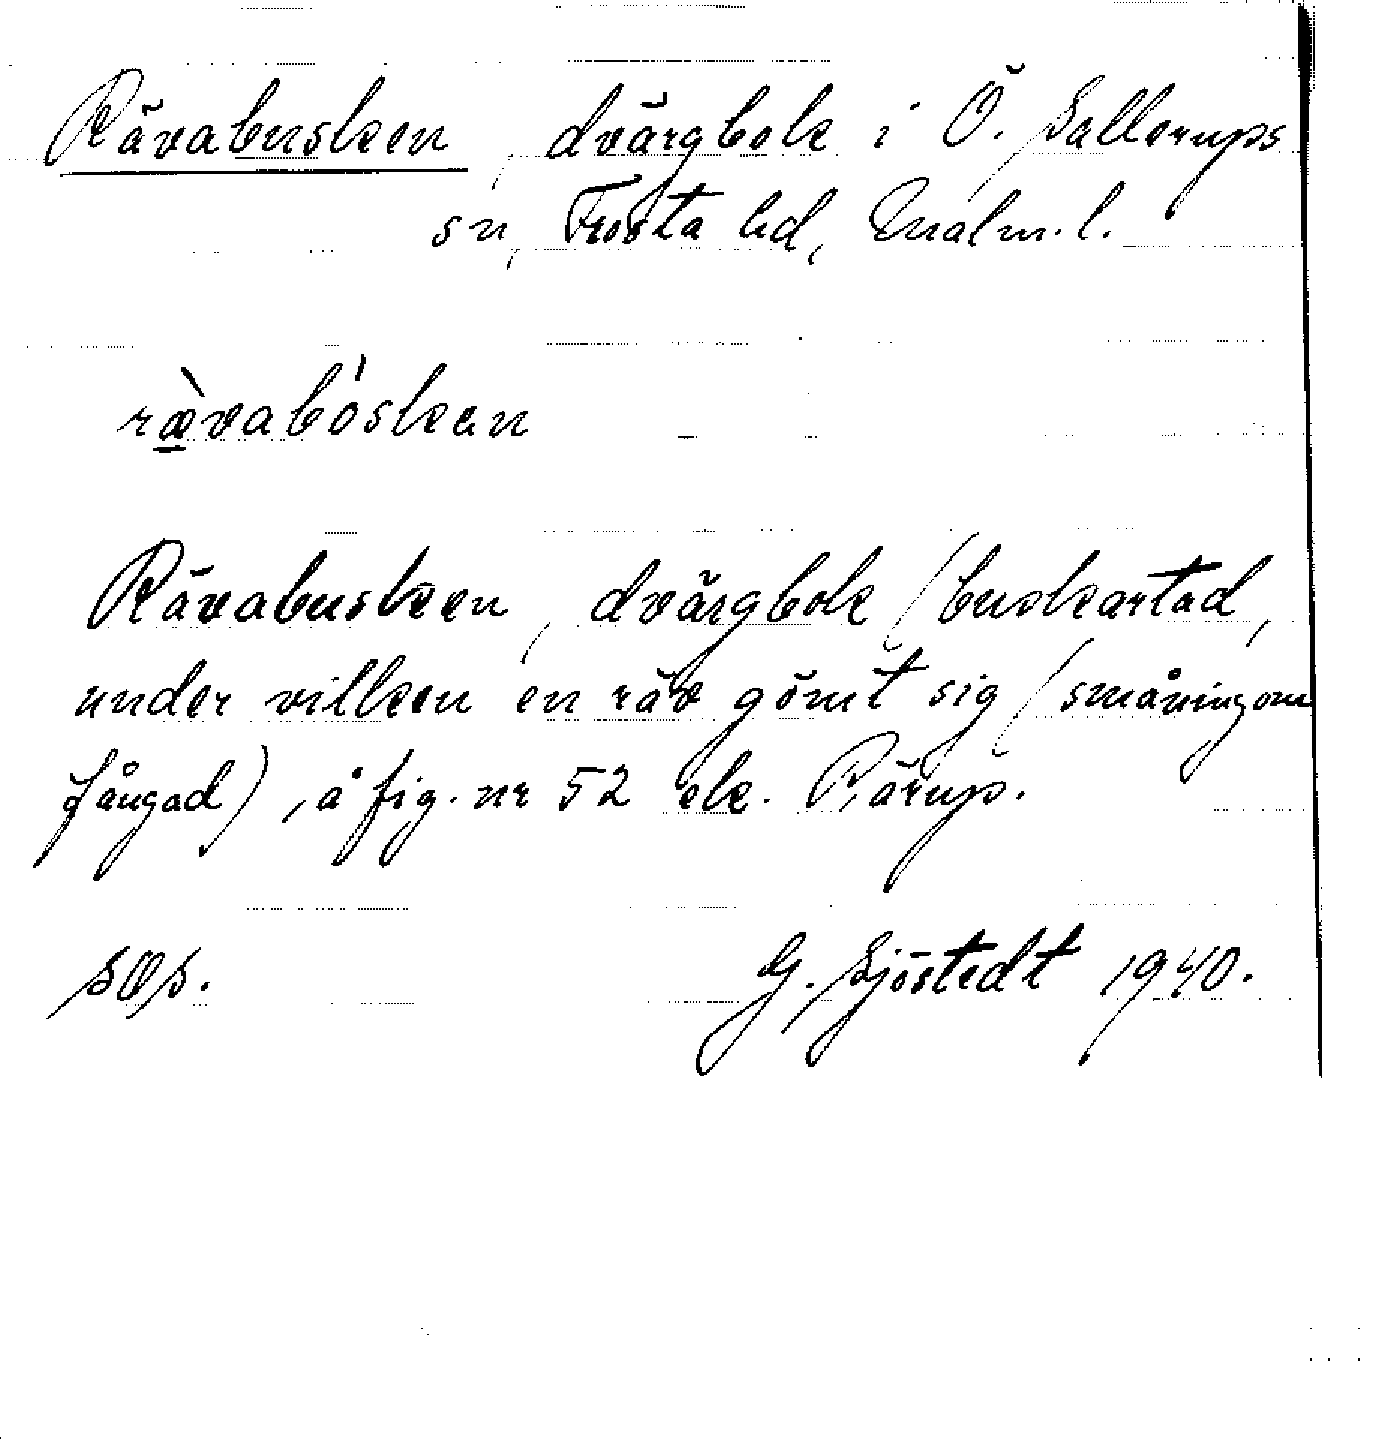 Rävabusken, dvärgbok i Ö. Sallerups
sn, Frosta hd, Malm. l.
ræ̀vabóskan
Rävabusken, dvärgbok (buskartad,
under vilken en räv gömt sig (småningom
fångad), å fig. nr 52 ek. Rörup.
sOs.
G. Sjöstedt 1940.